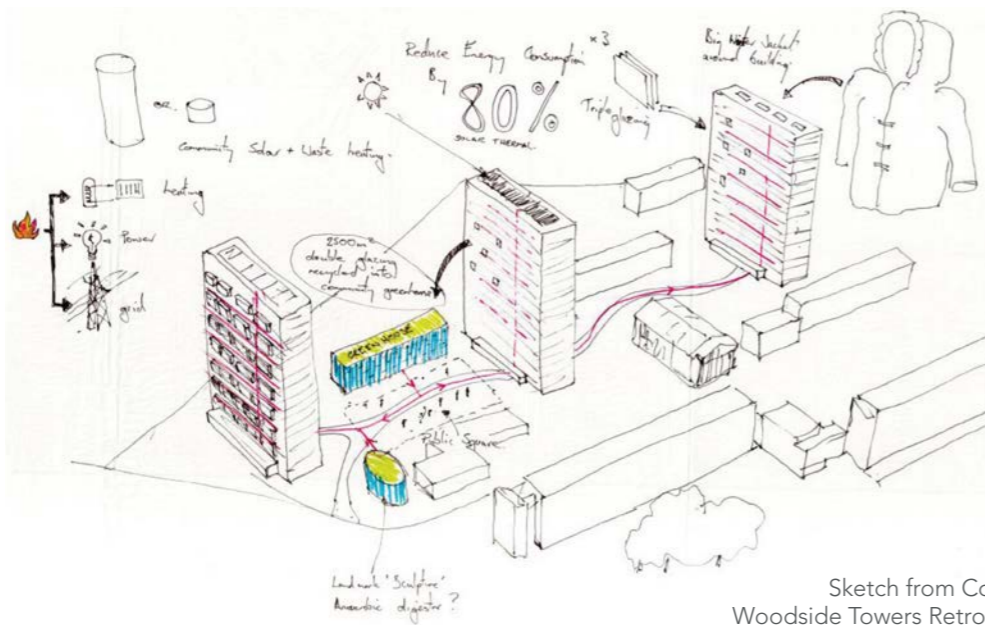 Reduce Energy Consumption
By
80%
SOLAR THERMAL
x3
Triple glazing
Big Winter Jacket
around building.
OR.
Community Solar + Waste heating.
heating
Power
grid
2500m²
double glazing
recycled into
community greenhouse
GREEN HOUSE
Public Square
Landmark 'Sculpture'
Anaerobic digester?
Sketch from Co
Woodside Towers Retro